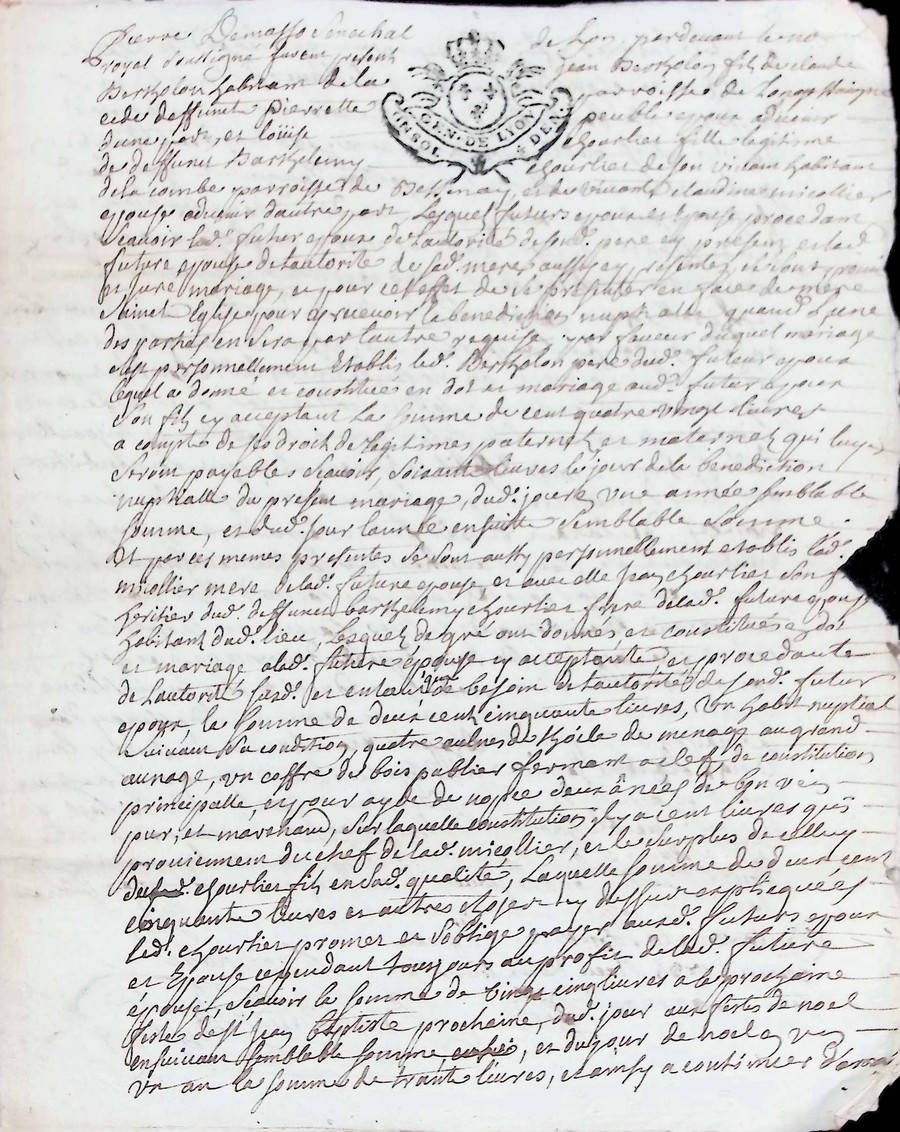 Pierre Demasso Senechal de Lyon pardevant le no
royal soussigné furent present Jean Bertholon fils de claude
Bertholon habitant de la parroisse de Longessaigne
et de deffunte Pierrette peuble epoux advenir
d'une part, et Loüise chourlier fille legitime
de deffunt Barthelemy chourlier de son vivant habitant
de la combe parroisse de Bessenay, et de vivante claudine micollier
epouse advenir d'autre part, Lesquels futurs epoux et Epouse procedant
Scavoir led. futur epoux de l'autorité de sond. pere cy present, et lad.
future epouse de l'autorité de sad. mere aussy cy presente, et s'ont promis
et juré mariage, et pour cet effet de se presenter en face de notre mere
Sainct Eglise pour y recevoir la benediction nuptialle quand l'une
des parties en sera par l'autre requise, par faveur duquel mariage
s'est personnellement Etablis led. Bertholon pere dud. futur epoux
lequel a donné et constitué en dot et mariage aud. futur epoux
son fils cy acceptant la somme de cent quatre vingt livres
a compte de ses droit de legitimes paternels et maternels qui luy
seront payables scavoir, soixante livres le jour de la benediction
nuptialle du present mariage, dud. jour en une année semblable
somme, et dud. jour l'année ensuitte semblable somme.
Et par ces memes presentes se sont aussy personnellement etablis lad.
micollier mere de lad. future epouse, et avec elle Jean chourlier son fils
heritier dud. deffunct barthelemy chourlier frere de lad. future epouse
habitant dud. lieu, Lesquels de gré ont donnés et constitués en dot
et mariage a lad. future épouse cy acceptante et procedante
de l'autorité susd. et entant que de besoin de l'autorité de sond. futur
epoux, la somme de deux cent cinquante livres, un habit nuptial
suivant sa condition, quatre aulnes de toile de menage au grand
aunage, un coffre de bois publier fermant a clef, de constitution
principalle, et pour ayde de nopce deux ânées de bon vin
pur, et marchand, sur laquelle constitution il y a cent livres qui
proviennent du chef de lad. micollier, et le surplus de celluy
dud. chourlier fils en sad. qualité, Laquelle somme de deux cent
cinquante livres et autres choses cy dessus expliquées
led. chourlier promet et s'oblige payer auxd. futurs epoux
et Epouse cependant toujours au profit de lad. future
épouse, Scavoir la somme de vingt cinq livres a la prochaine
feste de St Jean Baptiste prochaine, dud. jour aux festes de noel
ensuivant semblable somme, et du jour de noel en
un an la somme de trante livres, et ainsy a continuer d'année